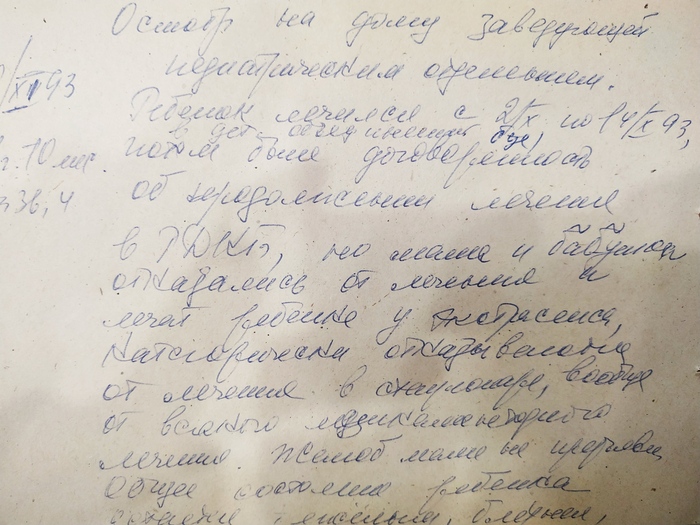 Осмотр на дому заведующей
педиатрическим отделением.
/XI 93
Ребенок лечился с 2/X по 14/X 93,
в дет.
потом была договоренность
10 мес
36,4
об продолжении лечения
в РДКБ, но мама и бабушка
отказались от лечения и
лечат ребенка у экстрасенса,
категорически отказываются
от лечения в стационаре, вообще
от всякого медикаментозного
лечения. Жалоб мама не
Общее состояние ребенка